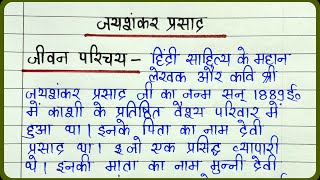 जयशंकर प्रसाद
जीवन परिचय - हिंदी साहित्य के महान
लेखक और कवि श्री
जयशंकर प्रसाद जी का जन्म सन् 1889ई०
में काशी के प्रतिष्ठित वैश्य परिवार में
हुआ था। इनके पिता का नाम देवी
प्रसाद था। जो एक प्रसिद्ध व्यापारी
थे। इनकी माता का नाम मुन्नी देवी